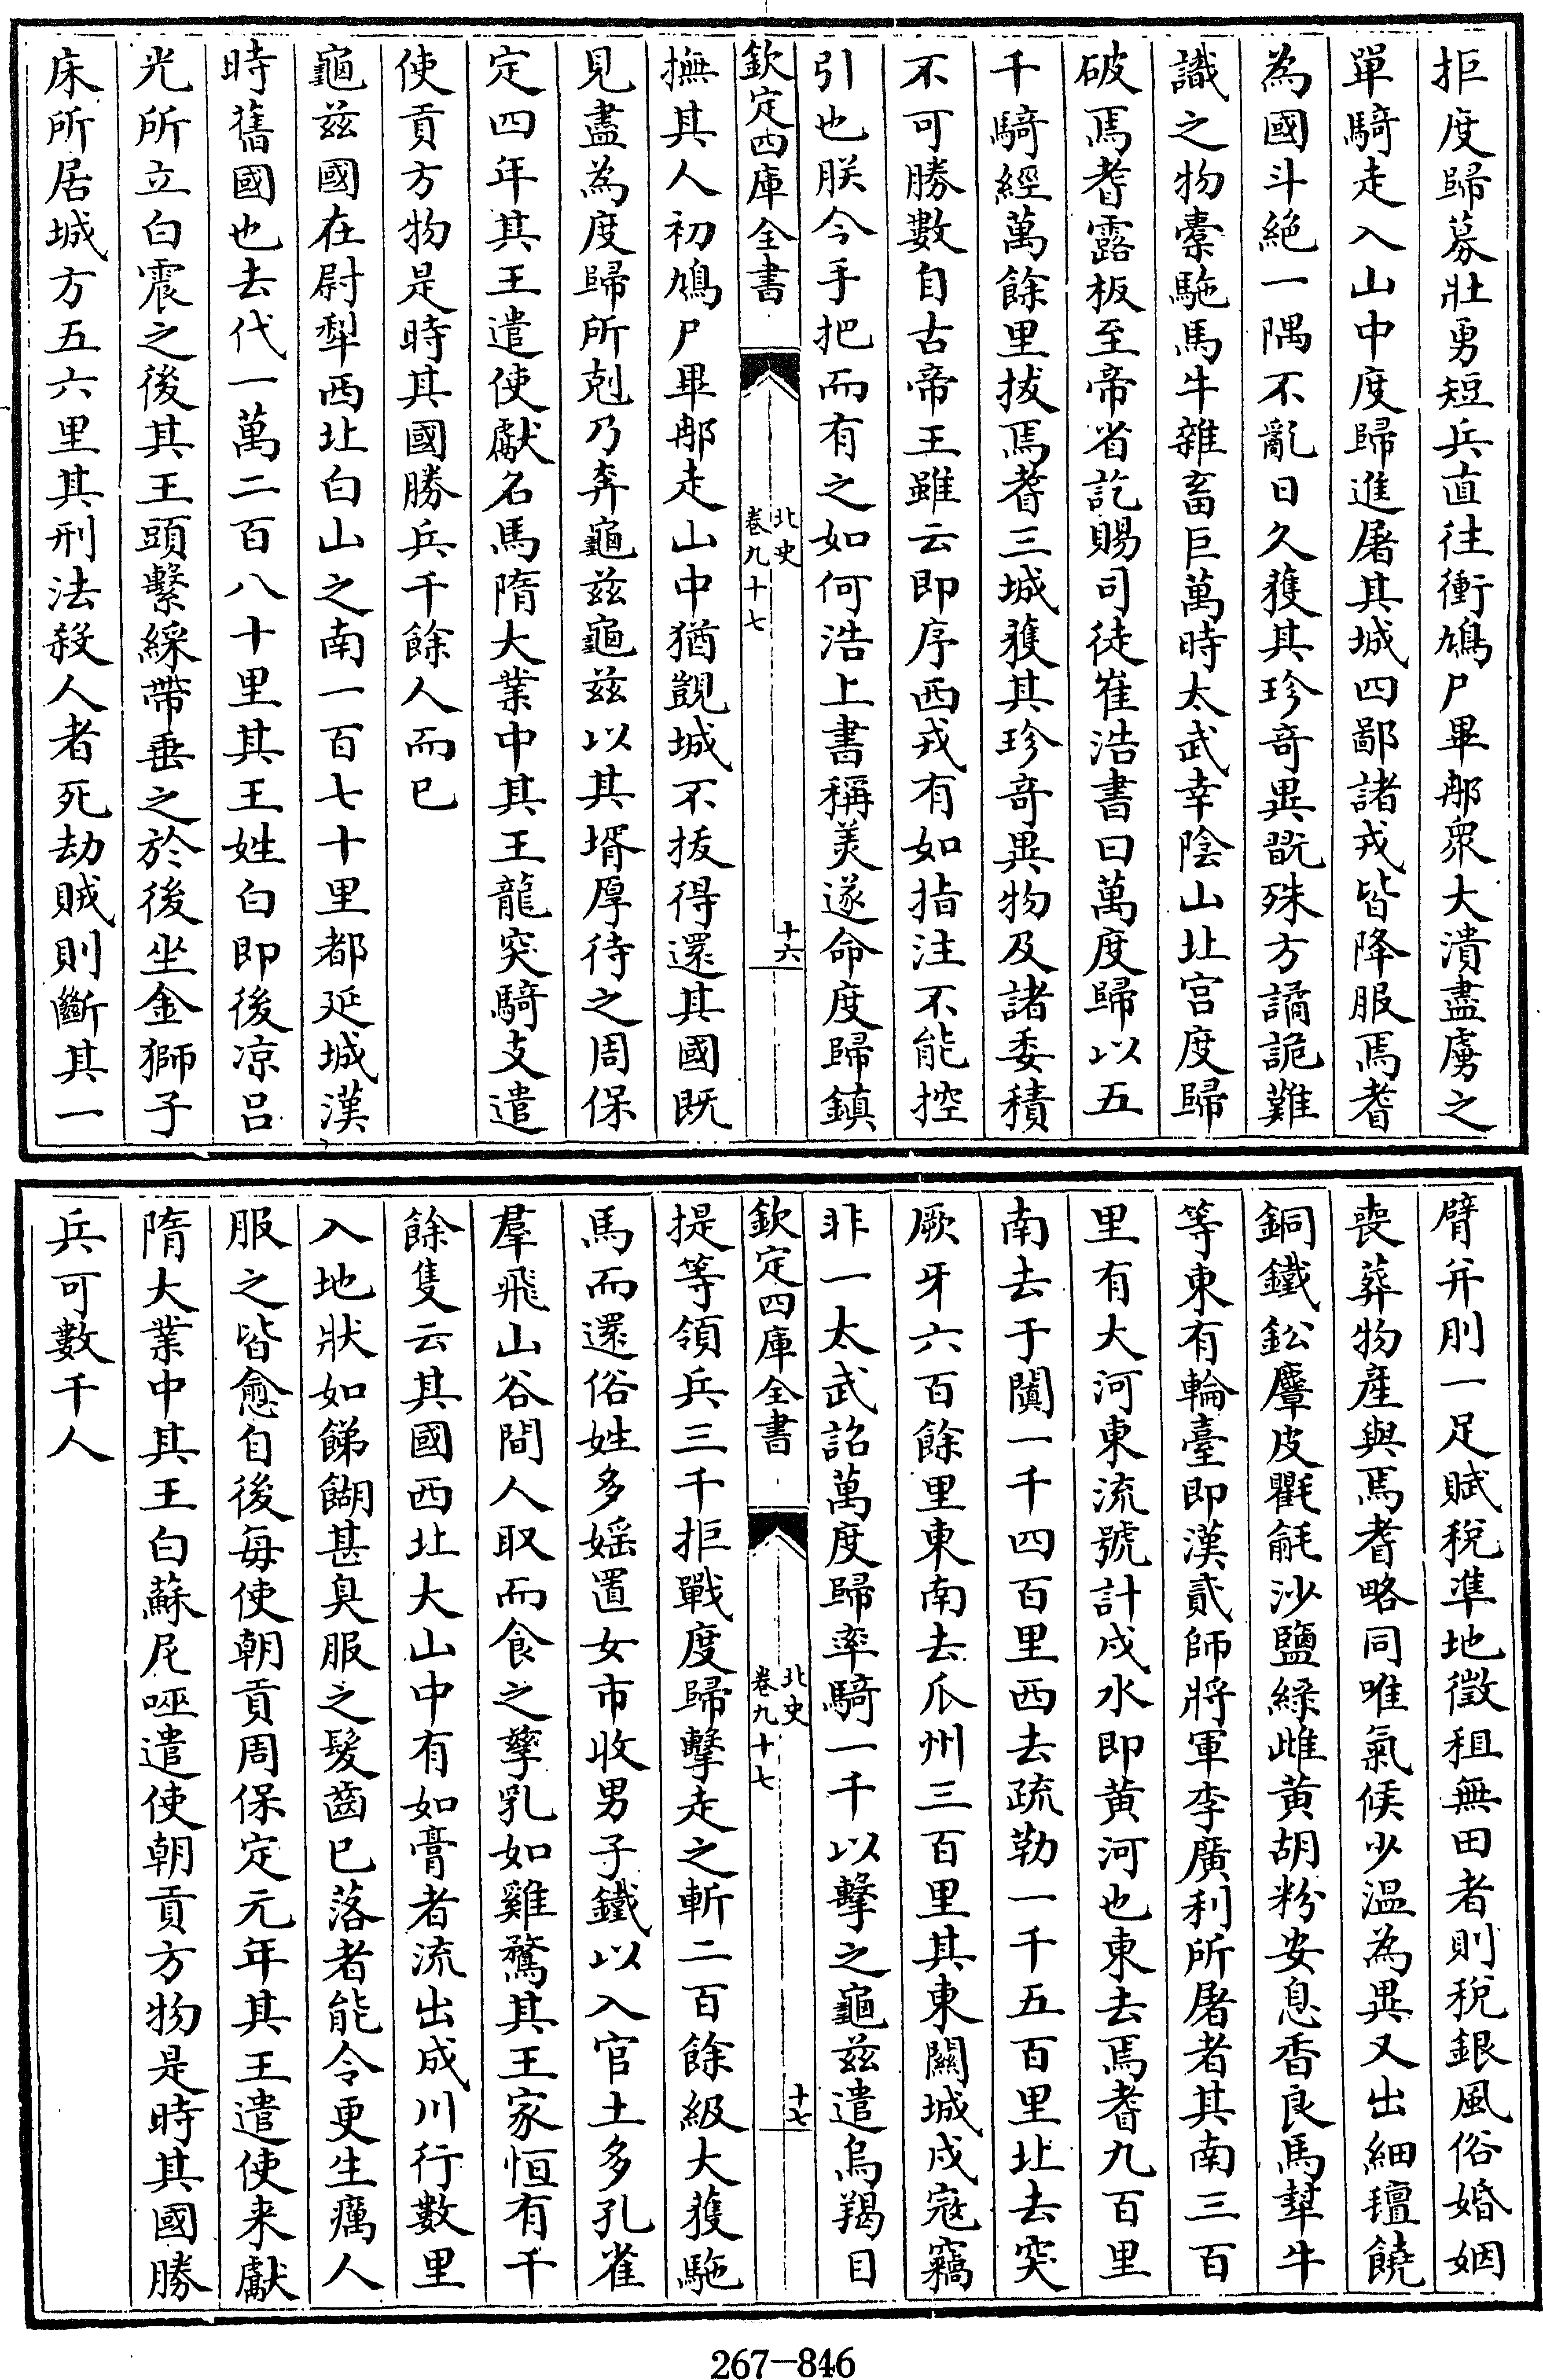 拒度歸募壯勇短兵直往衝鳩尸畢䣝衆大潰盡虜之
單騎走入山中度歸進屠其城四鄙諸戎皆降服焉耆
為國斗絕一隅不亂日久獲其珍竒異翫殊方譎詭難
識之物槖駞馬牛雜畜巨萬時太武幸陰山北宫度歸
破焉耆露板至帝省訖賜司徒崔浩書曰萬度歸以五
千騎經萬餘里拔焉耆三城獲其珍竒異物及諸委積
不可勝數自古帝王雖云即序西戎有如指注不能控
引也朕今手把而有之如何浩上書稱美遂命度歸鎮
欽定四庫全書
北史
卷九十七
十六
撫其人初鳩尸畢䣝走山中猶覬城不拔得還其國既
見盡為度歸所剋乃奔龜兹龜兹以其壻厚待之周保
定四年其王遣使獻名馬隋大業中其王龍突騎支遣
使貢方物是時其國勝兵千餘人而已
龜兹國在尉犁西北白山之南一百七十里都延城漢
時舊國也去代一萬二百八十里其王姓白即後凉吕
光所立白震之後其王頭繫綵帶垂之於後坐金獅子
床所居城方五六里其刑法殺人者死劫賊則斷其一
臂并刖一足賦稅準地徵租無田者則稅銀風俗婚姻
喪葬物產與焉耆略同唯氣候少温為異又出細氊饒
銅鐵鉛麞皮氍毹沙鹽綠雌黄胡粉安息香良馬犎牛
等東有輪臺即漢貳師將軍李廣利所屠者其南三百
里有大河東流號計戍水即黄河也東去焉耆九百里
南去于闐一千四百里西去疏勒一千五百里北去突
厥牙六百餘里東南去瓜州三百里其東闗城戍寇竊
非一太武詔萬度歸率騎一千以擊之龜兹遣烏羯目
欽定四庫全書
北史
卷九十七
十七
提等領兵三千拒戰度歸擊走之斬二百餘級大獲駞
馬而還俗姓多婬置女市收男子鐵以入官土多孔雀
羣飛山谷間人取而食之孳乳如雞鶩其王家恒有千
餘隻云其國西北大山中有如膏者流出成川行數里
入地狀如餳餬甚臭服之髮齒已落者能令更生癘人
服之皆愈自後每使朝貢周保定元年其王遣使来獻
隋大業中其王白蘇尼咥遣使朝貢方物是時其國勝
兵可數千人
267-846